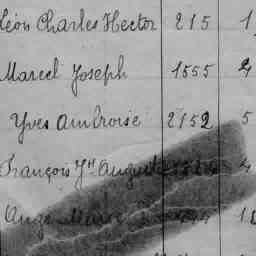 Léon Charles Hector 215 1
Marcel Joseph 1555 4
Yves Ambroise 2152 5
François Jh Auguste 4
Ange Marie 1